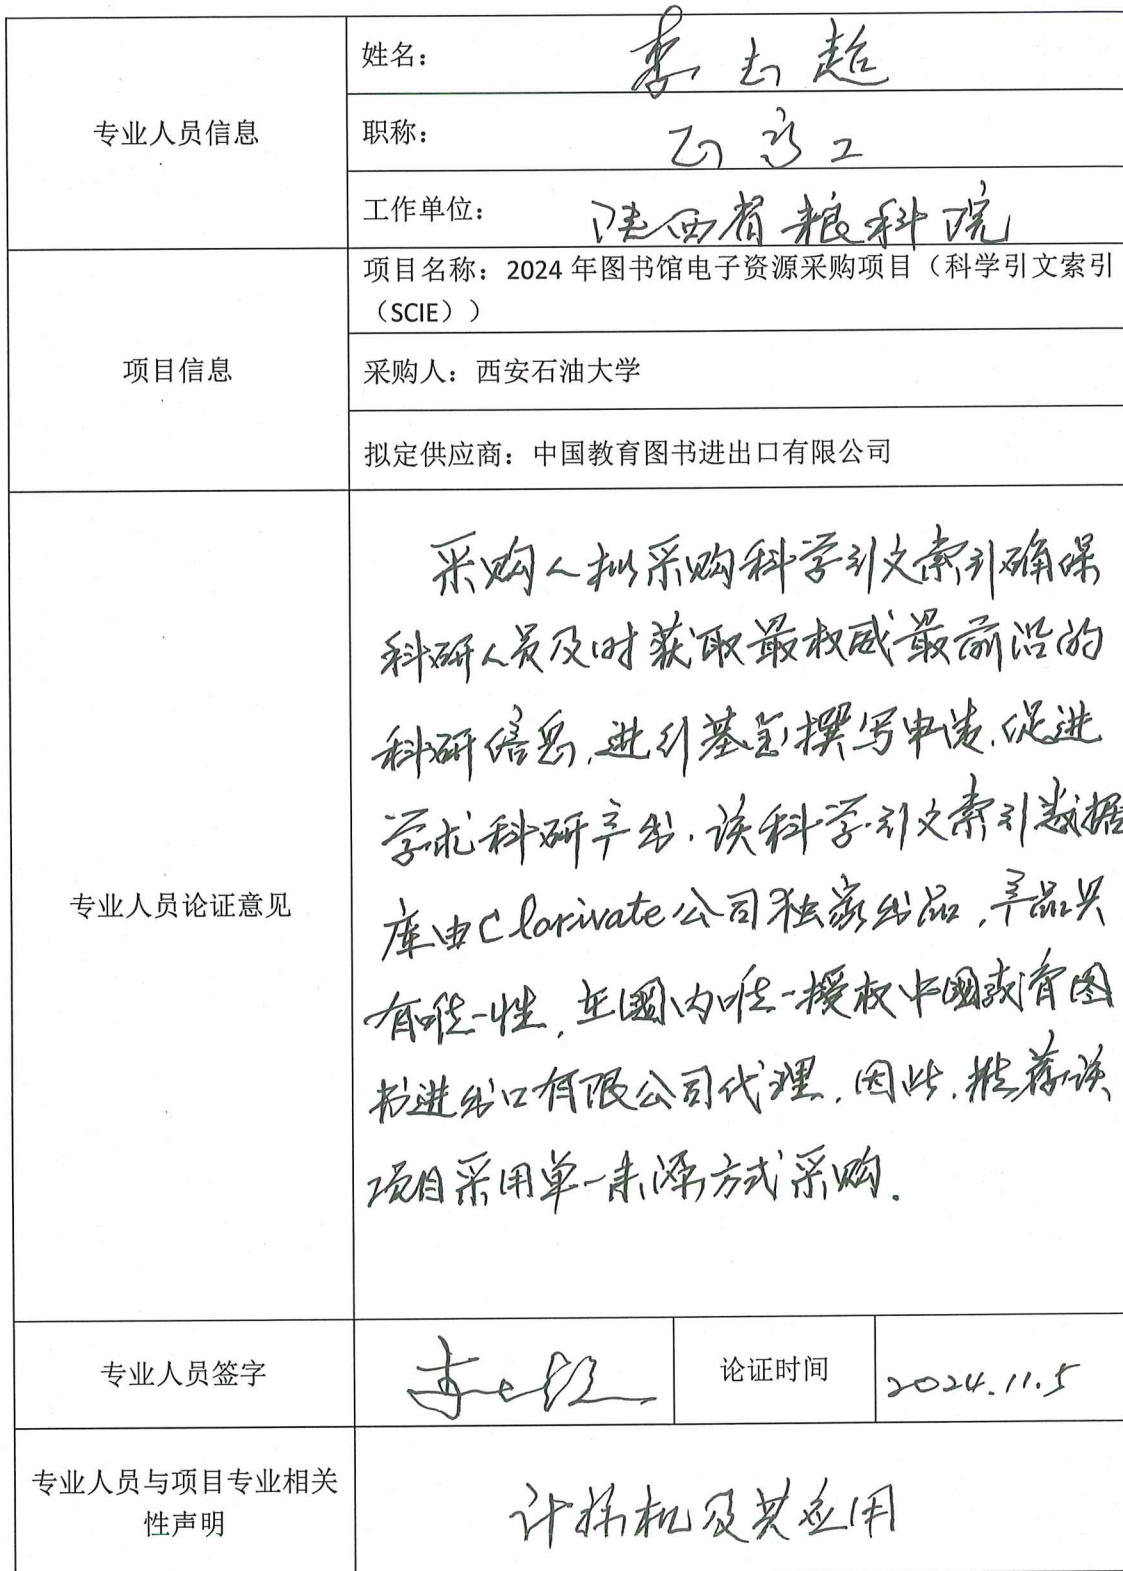 专业人员信息
姓名：李志超
职称：正高工
工作单位：陕西省粮科院
项目信息
项目名称：2024 年图书馆电子资源采购项目（科学引文索引
（SCIE））
采购人：西安石油大学
拟定供应商：中国教育图书进出口有限公司
专业人员论证意见
采购人拟采购科学引文索引确保
科研人员及时获取最权威最前沿的
科研信息,进行基金撰写申请,促进
学术科研产出.该科学引文索引数据
库由Clarivate公司独家出品,产品具
有唯一性,在國内唯一授权中國教育图
书进出口有限公司代理.因此,推荐该
项目采用单一来源方式采购.
专业人员签字
论证时间
2024.11.5
专业人员与项目专业相关
性声明
计算机及其应用